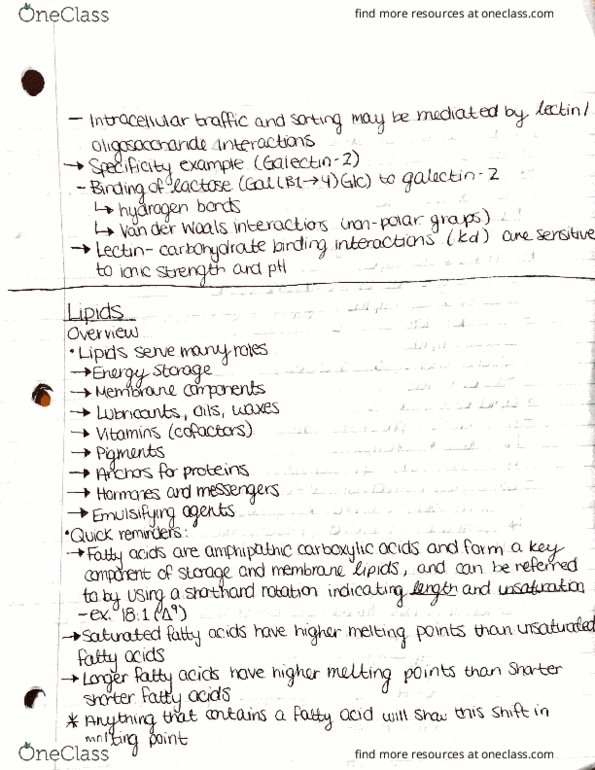 OneClass
find more resources at oneclass.com
- Intracellular traffic and sorting may be mediated by lectin/
oligosaccharide interactions
→ Specificity example (Galectin-2)
- Binding of lactose (Gal(β1→4)Glc) to galectin-2
↳ hydrogen bonds
↳ Van der Waals interactions (non-polar groups)
→ Lectin-carbohydrate binding interactions (kd) are sensitive
to ionic strength and pH
Lipids
Overview
• Lipids serve many roles
→ Energy storage
→ Membrane components
→ Lubricants, oils, waxes
→ Vitamins (cofactors)
→ Pigments
→ Anchos for proteins
→ Hormones and messengers
→ Emulsifying agents
• Quick reminders:
→ Fatty acids are amphipathic carboxylic acids and form a key
component of storage and membrane lipids, and can be referred
to by using a shorthand notation indicating length and unsaturation
- ex. 18:1 (Δ⁹)
→ Saturated fatty acids have higher melting points than unsaturated
fatty acids
→ Longer fatty acids have higher melting points than shorter
shorter fatty acids
* Anything that contains a fatty acid will show this shift in
melting point
OneClass
find more resources at oneclass.com